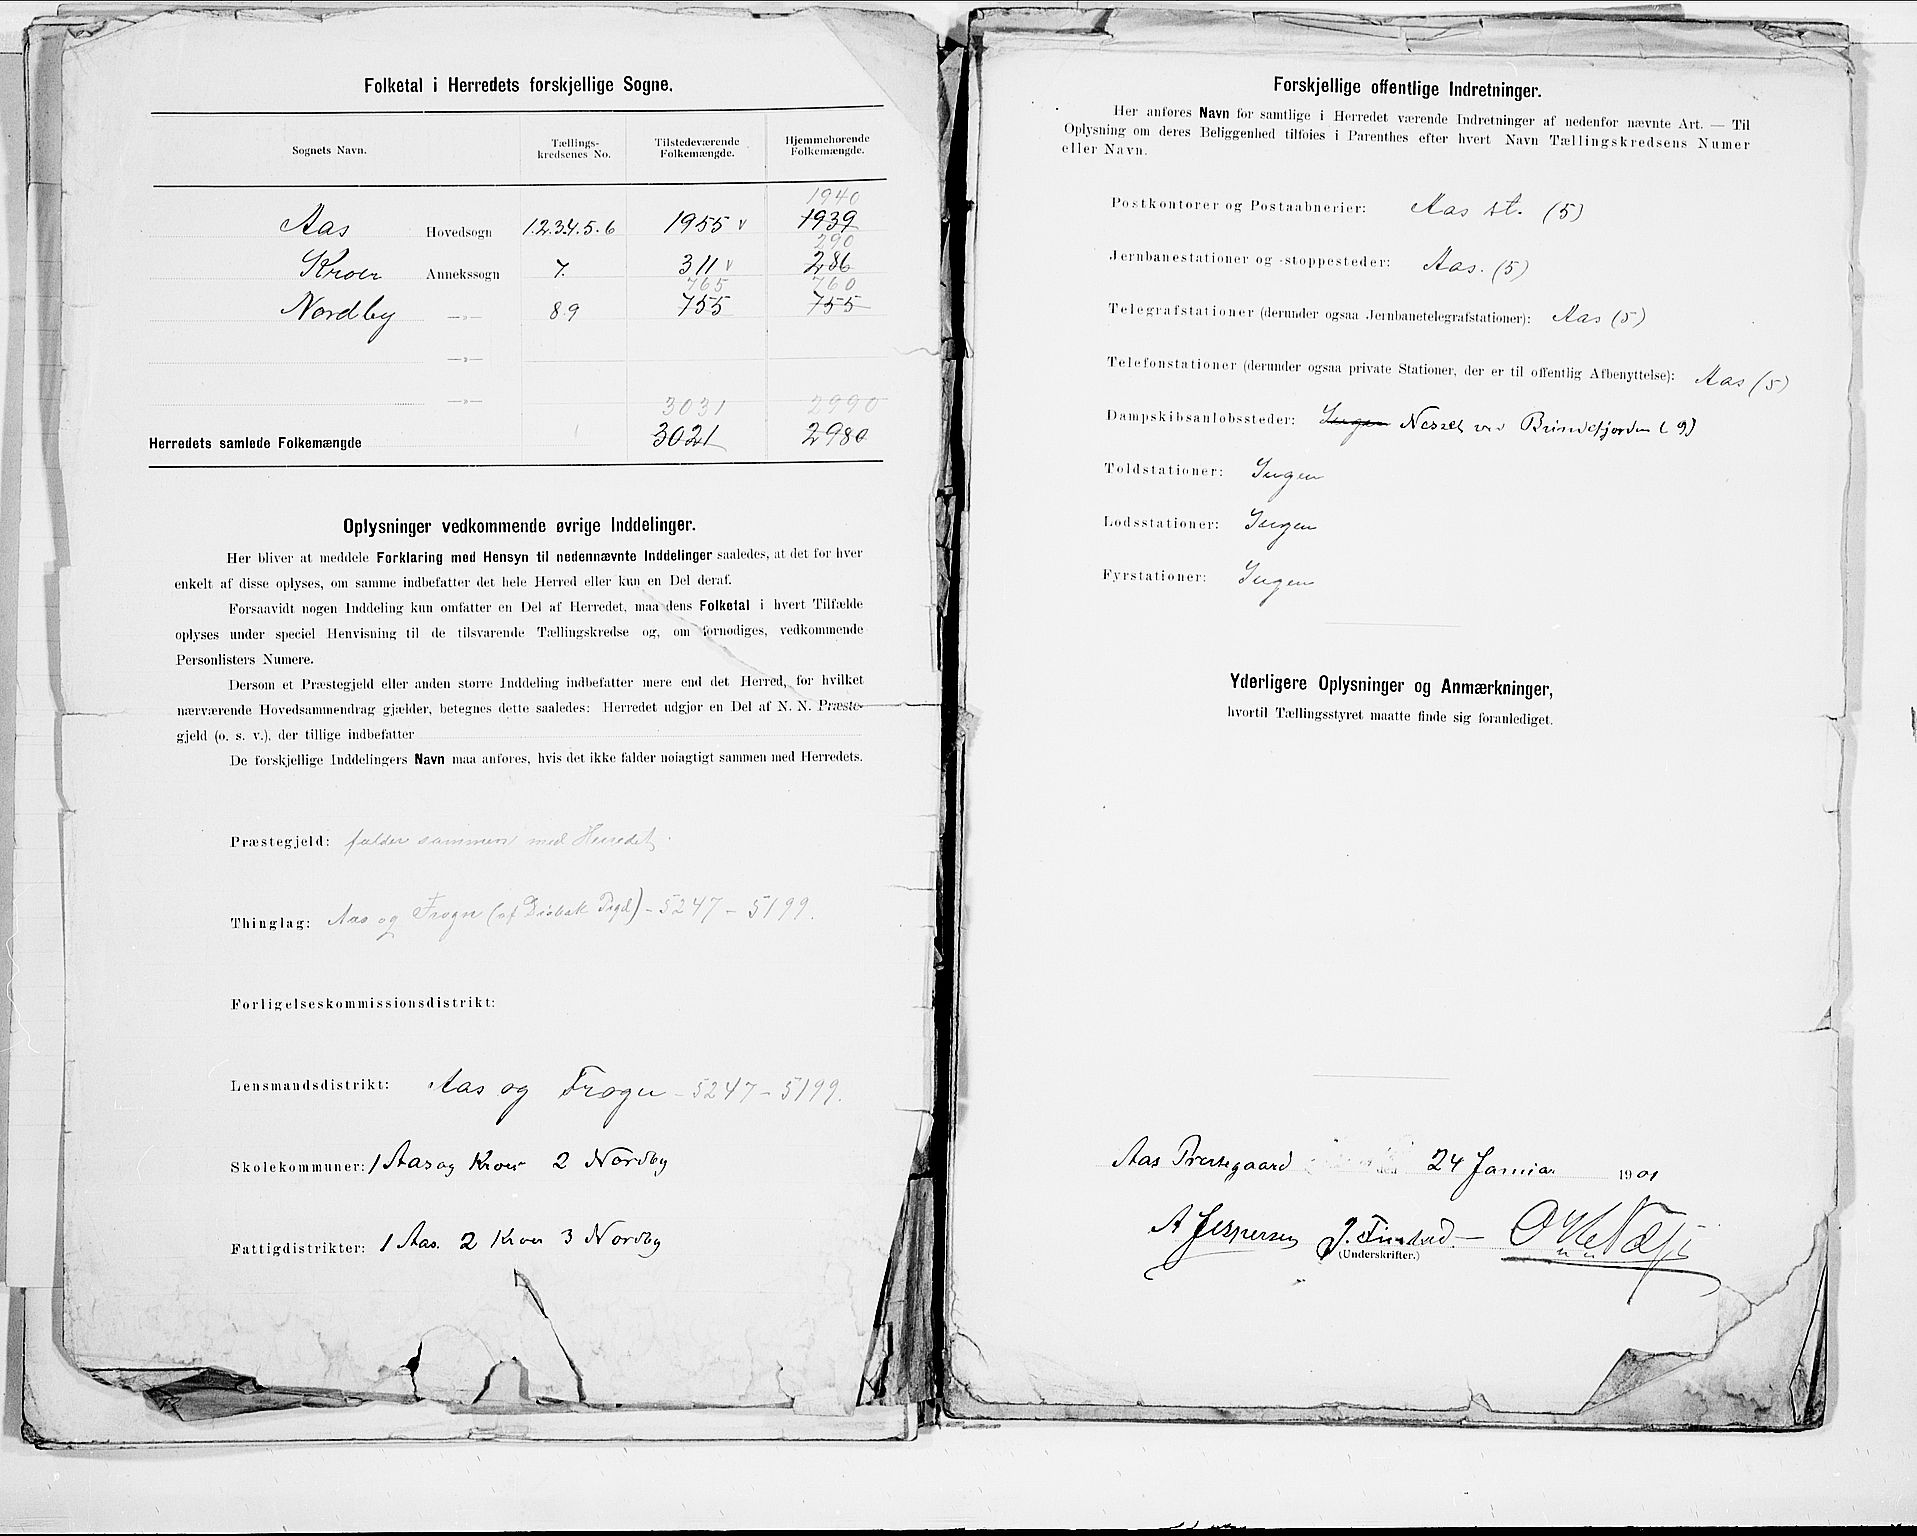 Folketal i Herredets forskjellige Sogne.
Sognets Navn. Tællings-kredsenes No. Tilstedeværende Folkemængde. Hjemmehørende Folkemængde.
1940
Aas Hovedsogn 1.2.3.4.5.6 1955 v 1939
290
Kroer Annekssogn 7. 311 v 286
765 760
Nordby —„— 8.9 755 755
—„—
—„—
3031 2990
Herredets samlede Folkemængde 3021 2980
Oplysninger vedkommende øvrige Inddelinger.
Her bliver at meddele Forklaring med Hensyn til nedennævnte Inddelinger saaledes, at det for hver
enkelt af disse oplyses, om samme indbefatter det hele Herred eller kun en Del deraf.
Forsaavidt nogen Inddeling kun omfatter en Del af Herredet, maa dens Folketal i hvert Tilfælde
oplyses under speciel Henvisning til de tilsvarende Tællingskredse og, om fornødiges, vedkommende
Personlisters Numere.
Dersom et Præstegjeld eller anden større Inddeling indbefatter mere end det Herred, for hvilket
nærværende Hovedsammendrag gjælder, betegnes dette saaledes: Herredet udgjør en Del af N. N. Præste-
gjeld (o. s. v.), der tillige indbefatter
De forskjellige Inddelingers Navn maa anføres, hvis det ikke falder nøiagtigt sammen med Herredets.
Præstegjeld: falder sammen med Herredet.
Thinglag: Aas og Frogn (af Drøbak Pgd) - 5247 - 5199.
Forligelseskommissionsdistrikt:
Lensmandsdistrikt: Aas og Frogn - 5247 - 5199.
Skolekommuner: 1 Aas og Kroer 2 Nordby
Fattigdistrikter: 1 Aas. 2 Kroer 3 Nordby
Forskjellige offentlige Indretninger.
Her anføres Navn for samtlige i Herredet værende Indretninger af nedenfor nævnte Art. — Til
Oplysning om deres Beliggenhed tilføies i Parenthes efter hvert Navn Tællingskredsens Numer
eller Navn.
Postkontorer og Postaabnerier: Aas st. (5)
Jernbanestationer og -stoppesteder: Aas. (5)
Telegrafstationer (derunder ogsaa Jernbanetelegrafstationer): Aas (5)
Telefonstationer (derunder ogsaa private Stationer, der er til offentlig Afbenyttelse): Aas (5)
Dampskibsanløbssteder: Ingen Nesset ved Bundefjorden (9)
Toldstationer: Ingen
Lodsstationer: Ingen
Fyrstationer: Ingen
Yderligere Oplysninger og Anmærkninger,
hvortil Tællingsstyret maatte finde sig foranlediget.
Aas Prestegaard den 24 Januar 1901
A Jespersen
(Underskrifter.)